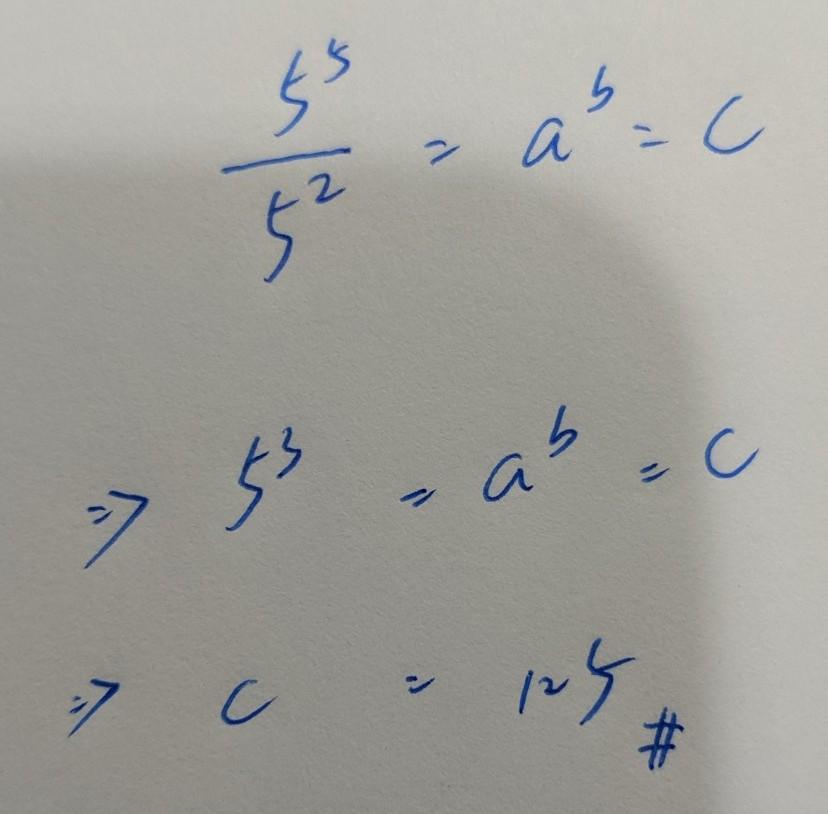 5^5 / 5^2 = a^b = c
⇒ 5^3 = a^b = c
⇒ c = 125 #